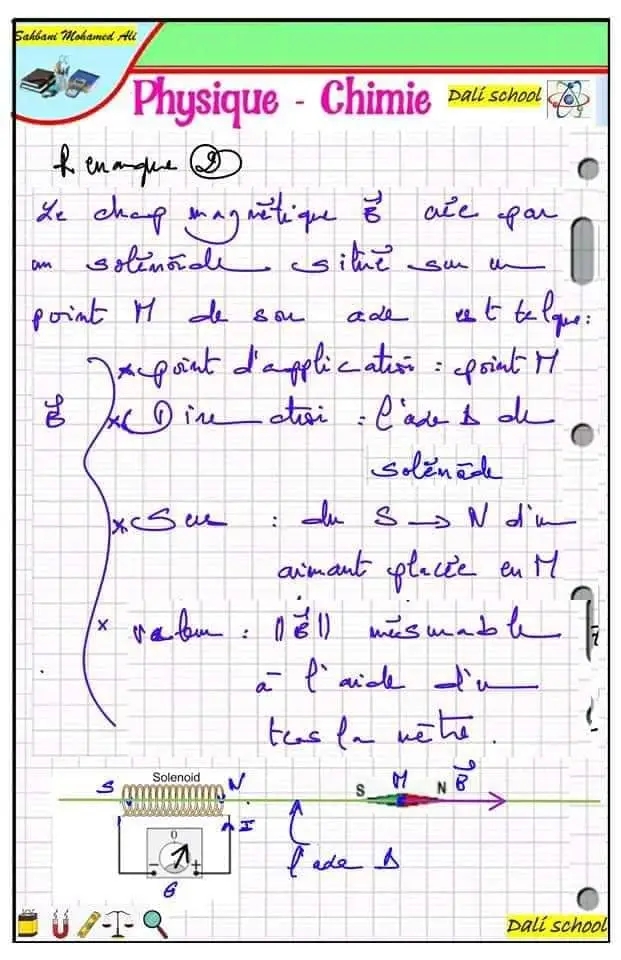 Sahbani Mohamed Ali
Physique - Chimie
Dali school
Remarque ②
Le champ magnétique B⃗ crée par
un solénoïde situé sur un
point M de son axe est telque:
* point d'application : point M
B⃗
* Direction : l'axe Δ de
solénoïde
* Sens : du S → N d'un
aimant placée en M
* valeur : ||B⃗|| mesurable
à l'aide d'un
tesla mètre.
Solenoid
S
N
S
M
N
B⃗
I
0
- +
G
l'axe Δ
Dali school